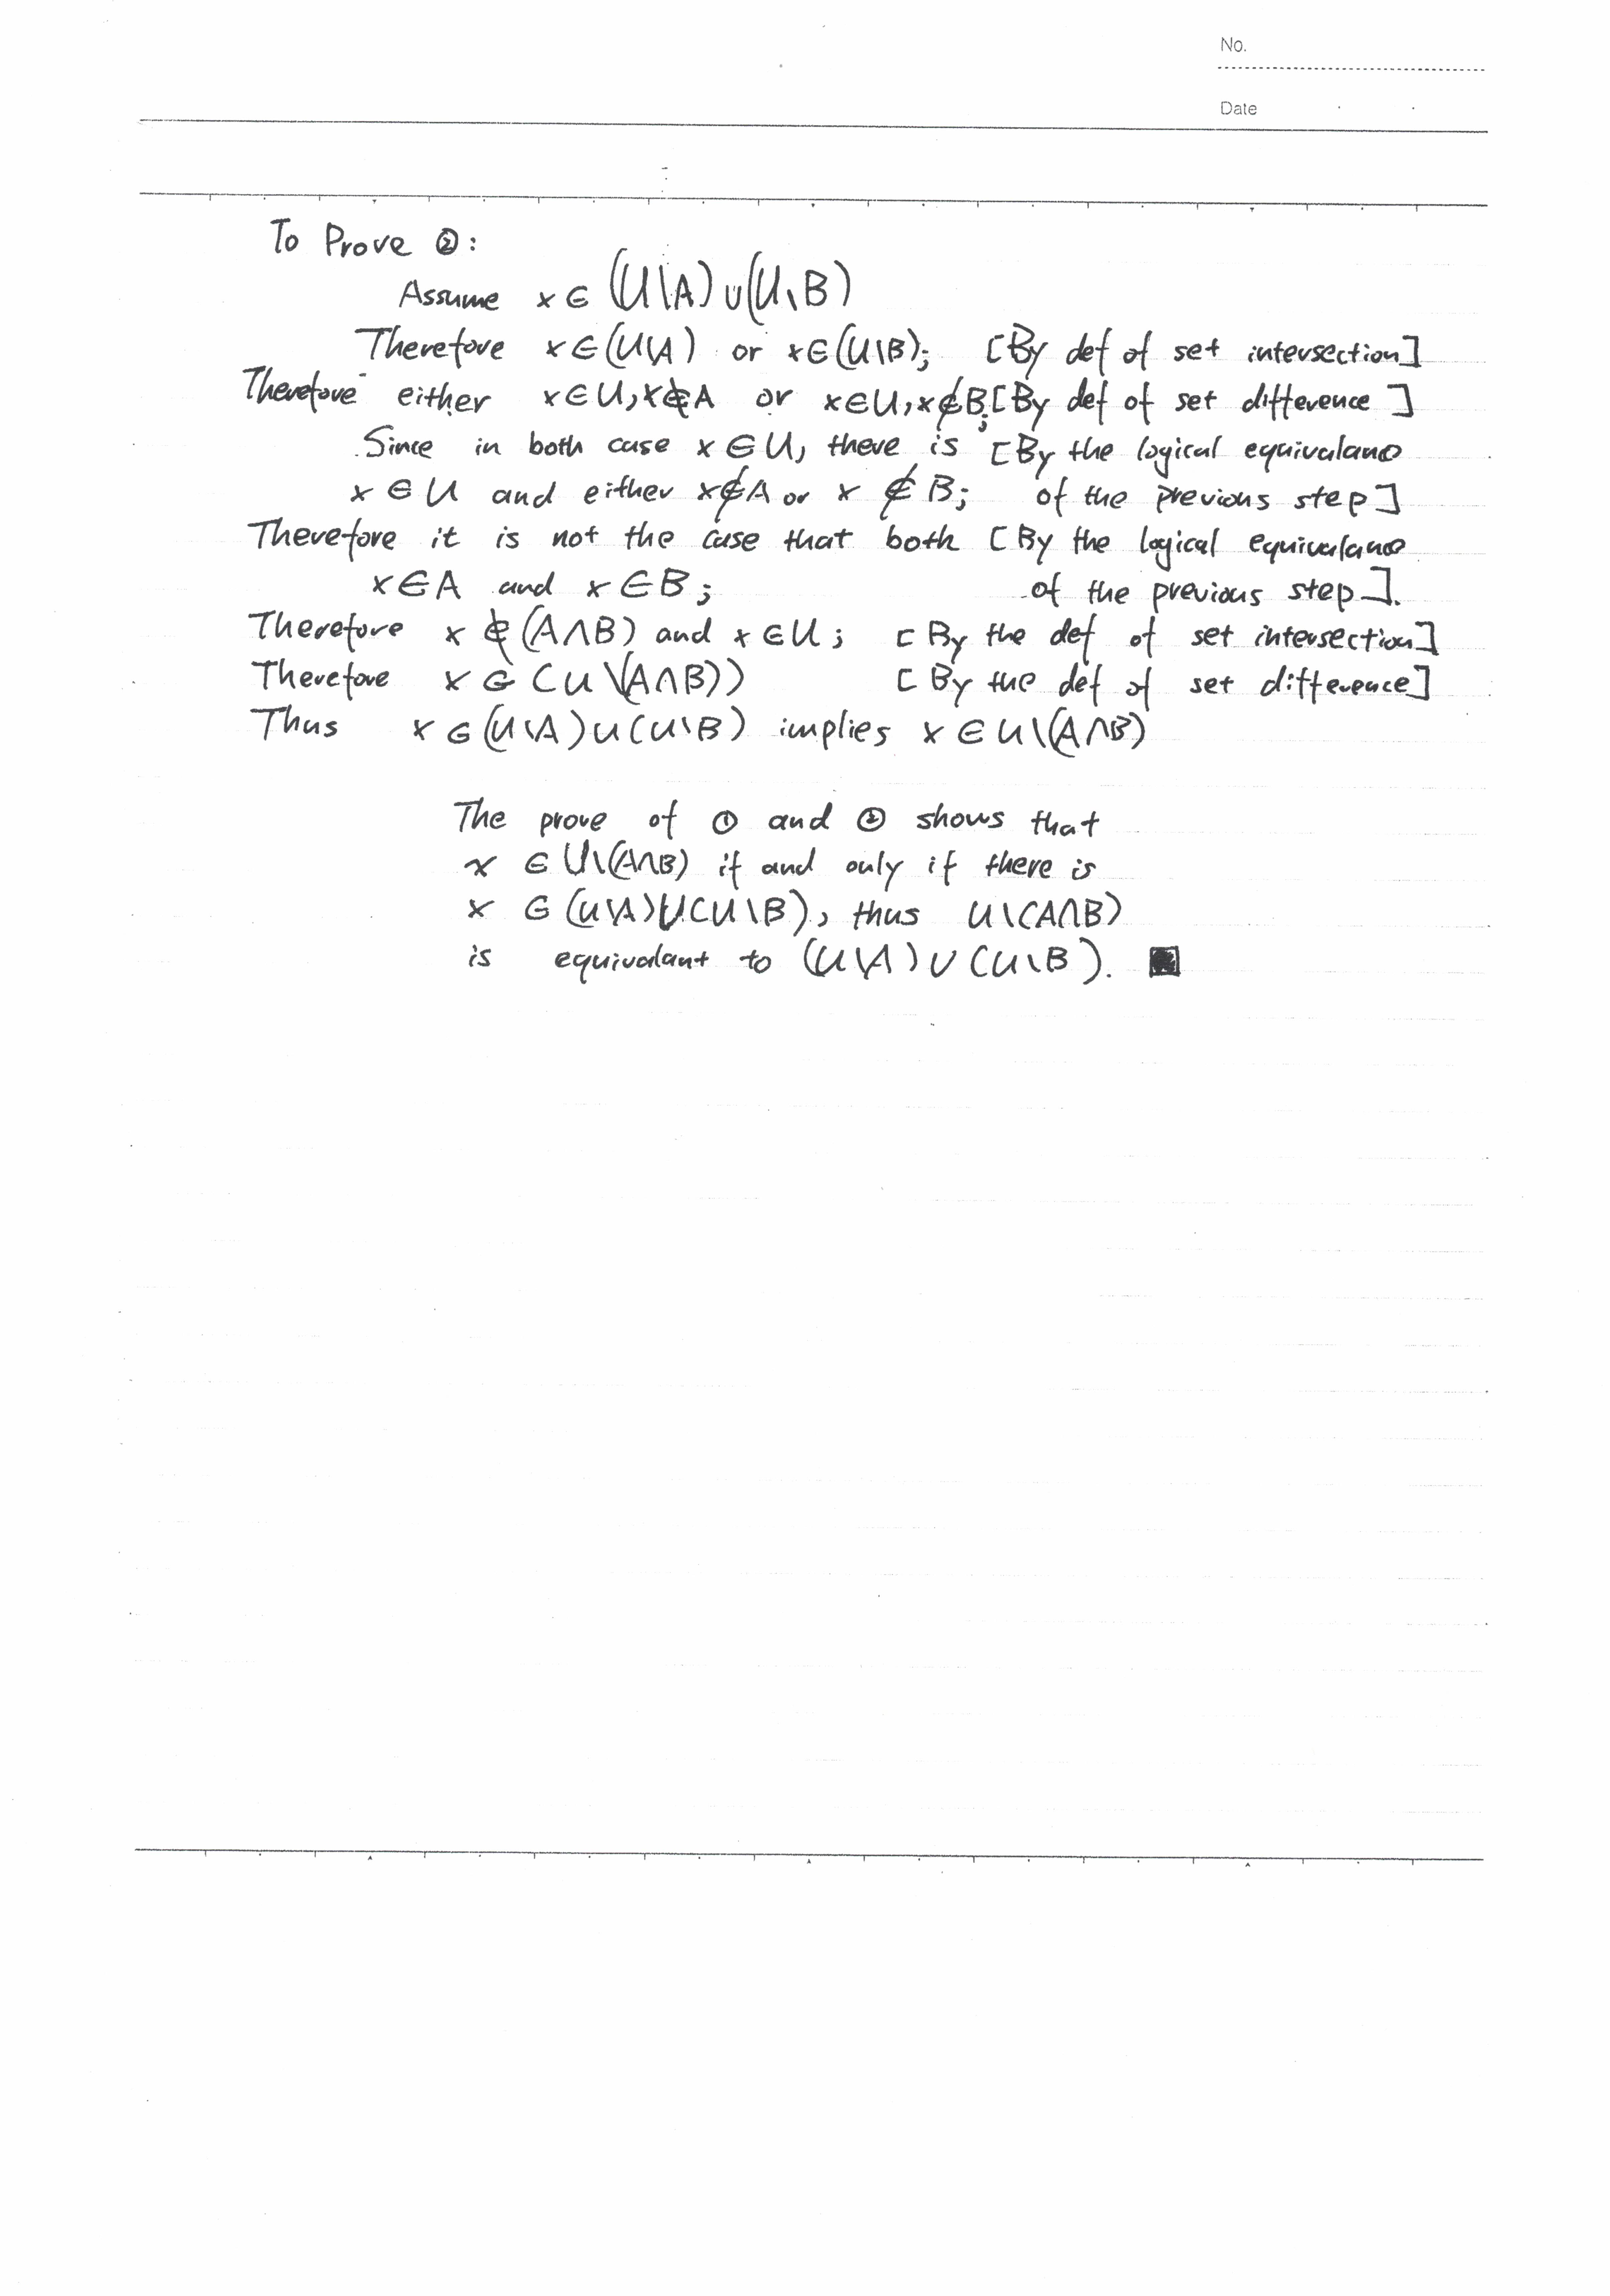 No.
Date
To Prove ②:
Assume x ∈ (U\A) ∪ (U\B)
Therefore x ∈ (U\A) or x ∈ (U\B); [By def of set intersection]
Therefore either x ∈ U, x ∉ A or x ∈ U, x ∉ B; [By def of set difference]
Since in both case x ∈ U, there is [By the logical equivalance
x ∈ U and either x ∉ A or x ∉ B; of the previous step]
Therefore it is not the case that both [By the logical equivalance
x ∈ A and x ∈ B; of the previous step].
Therefore x ∉ (A∩B) and x ∈ U; [By the def of set intersection]
Therefore x ∈ (U\(A∩B)) [By the def of set difference]
Thus x ∈ (U\A) ∪ (U\B) implies x ∈ U\(A∩B)
The prove of ① and ② shows that
x ∈ U\(A∩B) if and only if there is
x ∈ (U\A)∪(U\B), thus U\(A∩B)
is equivalant to (U\A) ∪ (U\B). ■